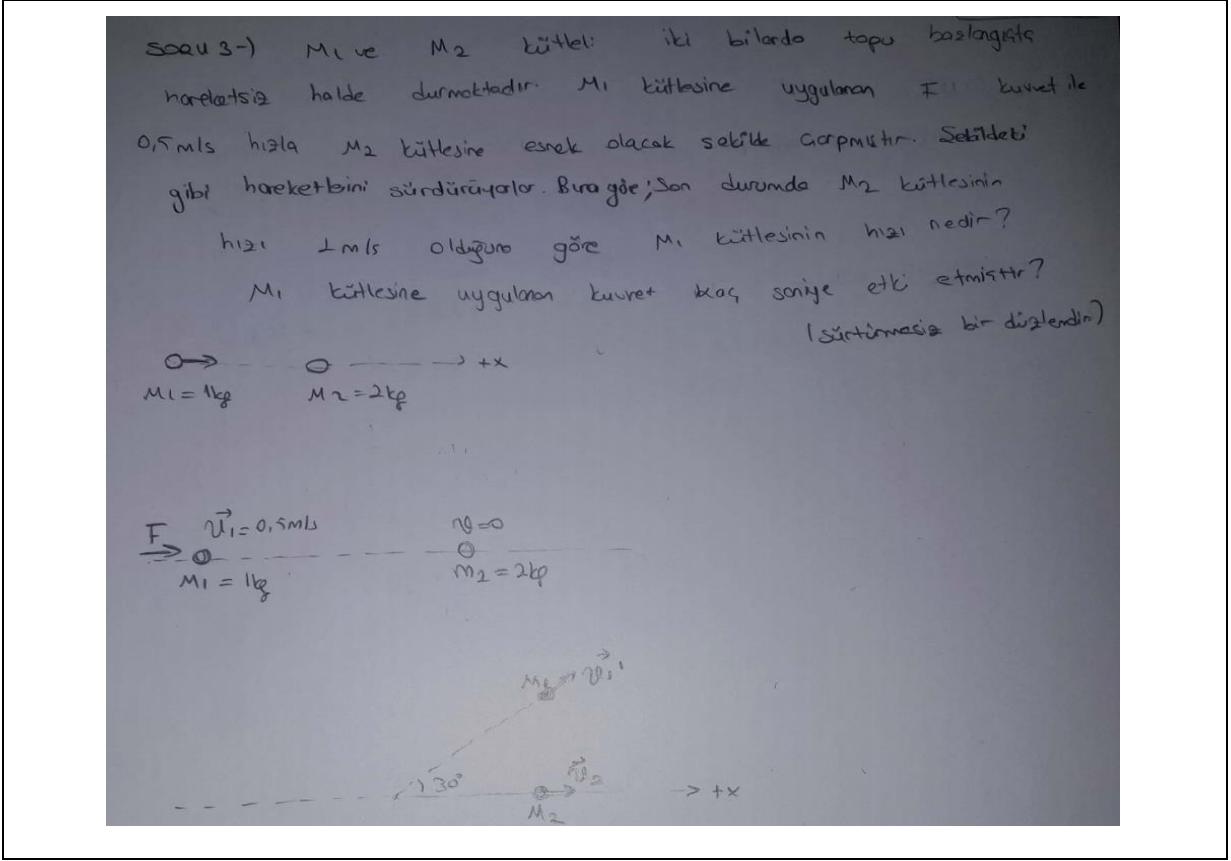 soru 3-) M1 ve M2 kütleli iki bilardo topu başlangıçta
hareketsiz halde durmaktadır. M1 kütlesine uygulanan F kuvvet ile
0,5 m/s hızla M2 kütlesine esnek olacak şekilde çarpmıştır. Şekildeki
gibi hareketlerini sürdürüyorlar. Buna göre; Son durumda M2 kütlesinin
hızı 1 m/s olduğuna göre M1 kütlesinin hızı nedir?
M1 kütlesine uygulanan kuvvet kaç saniye etki etmiştir?
(sürtünmesiz bir düzlemdir)
+x
M1 = 1kg M2 = 2kg
F v1 = 0,5 m/s v=0
M1 = 1kg m2 = 2kg
M1 v1'
30° v2
+x
M2